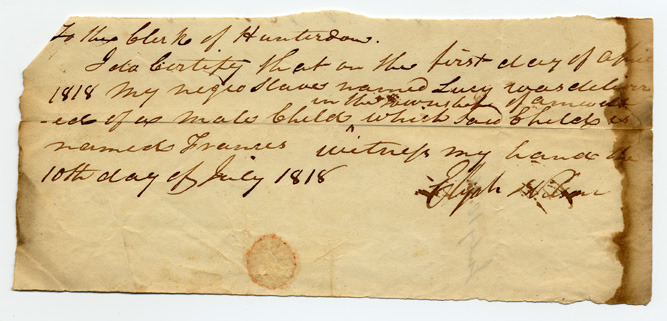 To the Clerk of Hunterdon.
I do Certify that on the first day of April
1818 my negro Slave named Lucy was deliver
in the township of amwell
-ed of a male Child which said Child is
named Frances witness my hand the
10th day of July 1818
Elijah Wilson